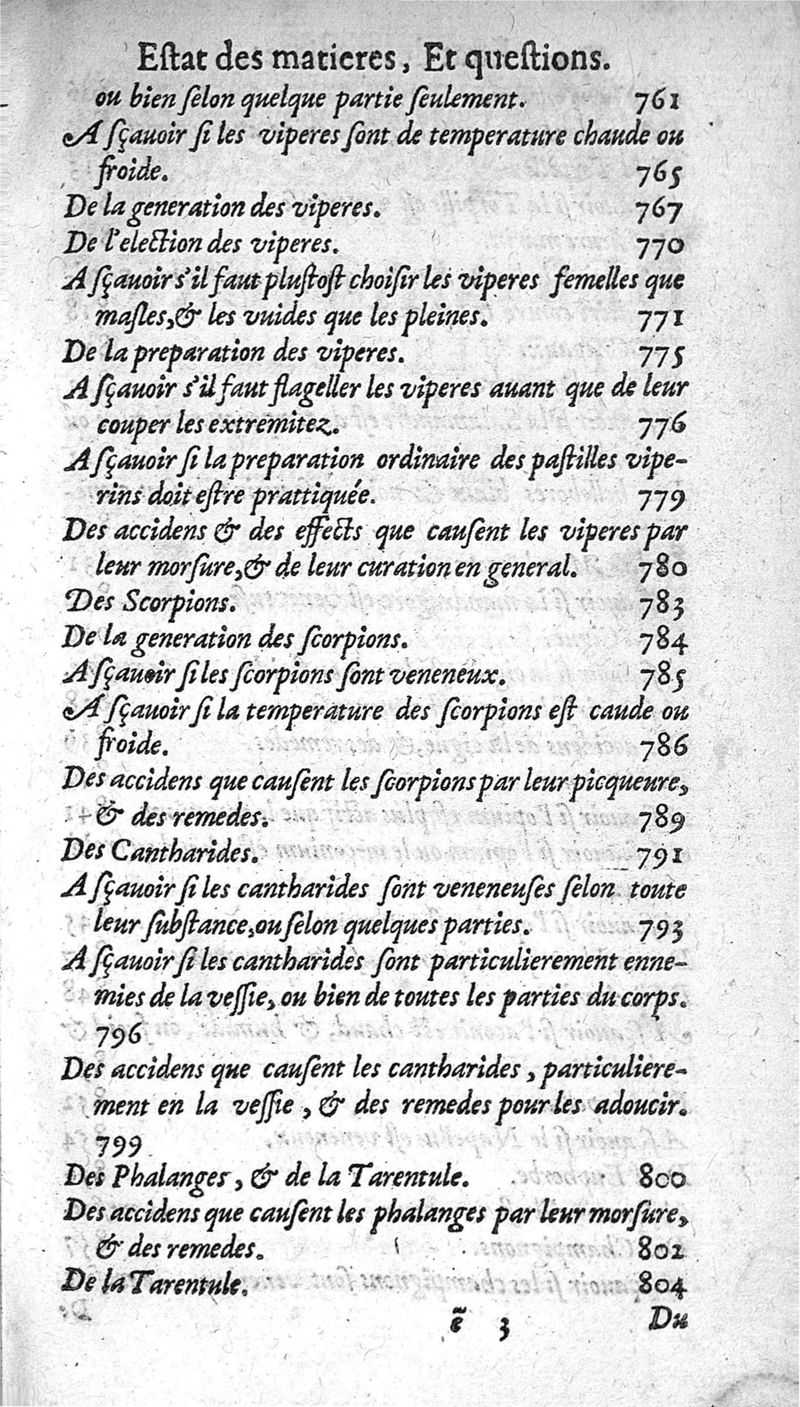 Eſtat des matieres, Et queſtions.
ou bien ſelon quelque partie ſeulement. 761
A ſçauoir ſi les viperes ſont de temperature chaude ou
froide. 765
De la generation des viperes. 767
De l'election des viperes. 770
A ſçauoir s'il faut pluſtoſt choiſir les viperes femelles que
maſles, & les vuides que les pleines. 771
De la preparation des viperes. 775
A ſçauoir s'il faut flageller les viperes auant que de leur
couper les extremitez. 776
A ſçauoir ſi la preparation ordinaire des paſtilles vipe-
rins doit eſtre prattiquée. 779
Des accidens & des effects que cauſent les viperes par
leur morſure, & de leur curation en general. 780
Des Scorpions. 783
De la generation des ſcorpions. 784
A ſçauoir ſi les ſcorpions ſont veneneux. 785
A ſçauoir ſi la temperature des ſcorpions eſt caude ou
froide. 786
Des accidens que cauſent les ſcorpions par leur picqueure,
& des remedes. 789
Des Cantharides. 791
A ſçauoir ſi les cantharides ſont veneneuſes ſelon toute
leur ſubſtance, ou ſelon quelques parties. 793
A ſçauoir ſi les cantharides ſont particulierement enne-
mies de la veſſie, ou bien de toutes les parties du corps.
796
Des accidens que cauſent les cantharides, particuliere-
ment en la veſſie, & des remedes pour les adoucir.
799
Des Phalanges, & de la Tarentule. 800
Des accidens que cauſent les phalanges par leur morſure,
& des remedes. 802
De la Tarentule. 804
ẽ 3 Du